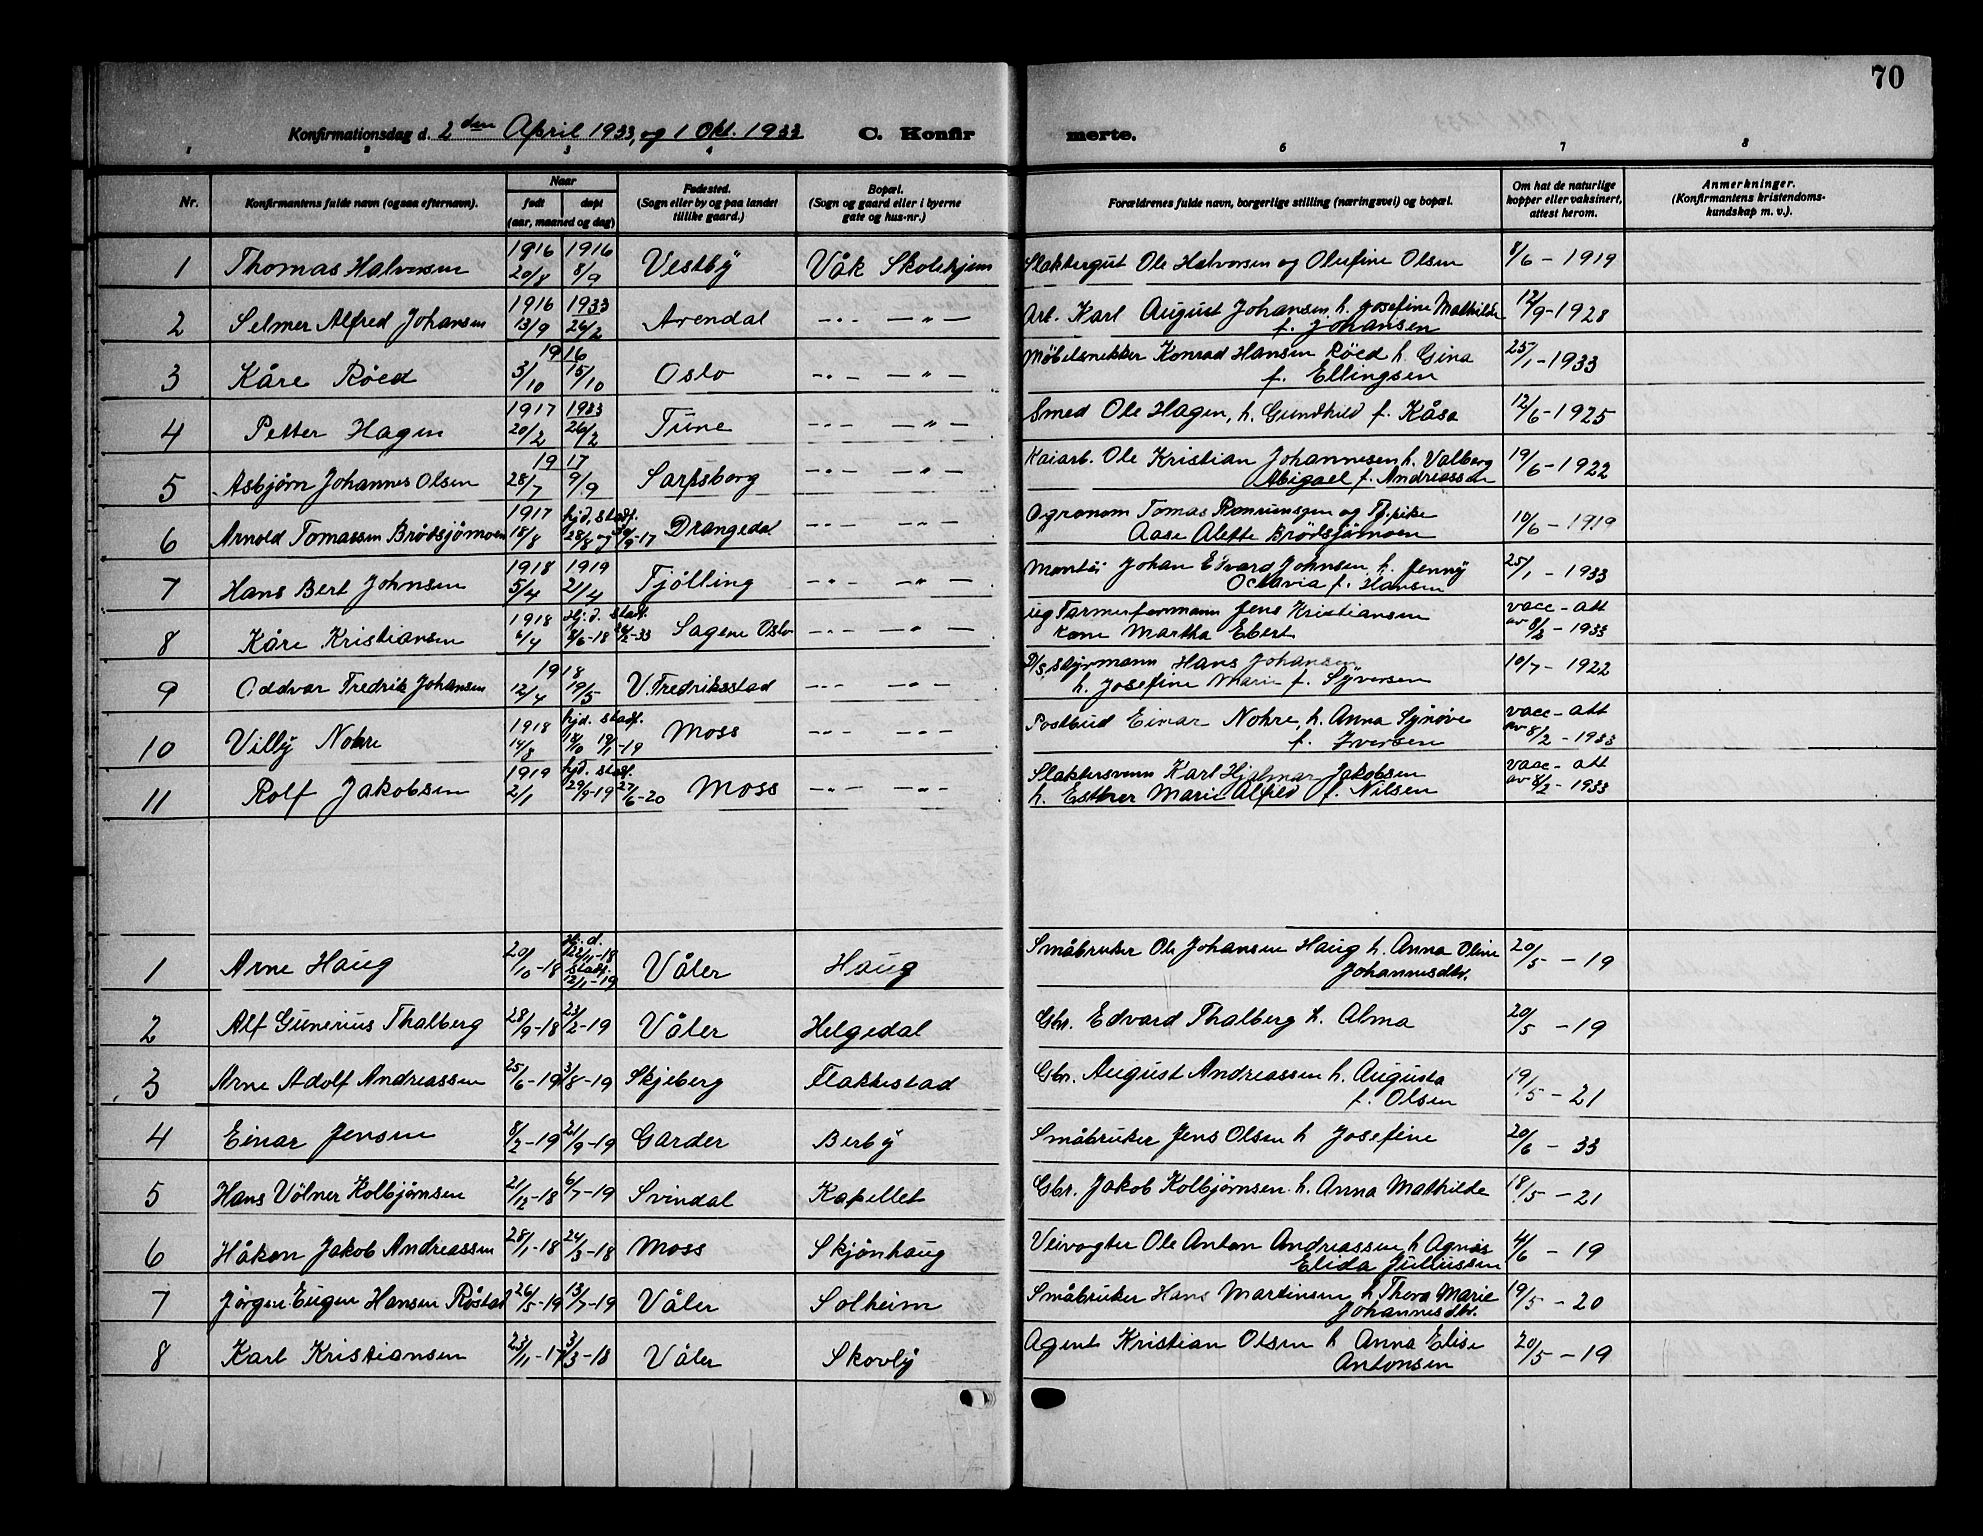 70
Konfirmationsdag d. 2 den April 1933, og 1 Okt. 1933 C. Konfir merte.
1 2 3 4 6 7 8
Nr. Konfirmantens fulde navn (ogsaa efternavn). Naar født døpt (aar, maaned og dag) Fødested. (Sogn eller by og paa landet tillike gaard.) Bopæl. (Sogn og gaard eller i byerne gate og hus-nr.) Forældrenes fulde navn, borgerlige stilling (næringsvei) og bopæl. Om hat de naturlige kopper eller vaksinert, attest herom. Anmerkninger. (Konfirmantens kristendomskundskap m. v.).
1 Thomas Halvorsen 1916 20/8 1916 8/9 Vestby Våk Skolehjem Slaktergut Ole Halvorsen og Olufine Olsen 8/6 - 1919
2 Selmer Alfred Johansen 1916 13/9 1933 26/2 Arendal -"- -"- Arb. Karl August Johansen, h. Josefine Mathilde f. Johansen 12/9 - 1928
3 Kåre Røed 1916 3/10 15/10 Oslo -"- -"- Møbelsnekker Konrad Hansen Røed h. Gina f. Ellingsen 25/1 - 1933
4 Petter Hagen 1917 20/2 1933 26/2 Tune -"- -"- Smed Ole Hagen, h. Gundhild f. Kåsa 12/6 - 1925
5 Asbjørn Johannes Olsen 1917 28/7 9/9 Sarpsborg -"- -"- Kaiarb. Ole Kristian Johannesen h. Valberg Abigael f. Andreassen 19/6 - 1922
6 Arnold Tomassen Brødsjømoen 1917 18/8 hjd. stadf. 28/8 og 30/9-17 Drangedal -"- -"- Agronom Tomas og Tj.pike Aase Alette Brødsjømoen 10/6 - 1919
7 Hans Bert Johnsen 1918 5/4 1919 21/4 Tjølling -"- -"- Montør Johan Edvard Johnsen h. Jenny Octavia f. Hansen 25/1 - 1933
8 Kåre Kristiansen 1918 6/4 Hj.d. stadf. 8/6-18 26/2-33 Sagene Oslo -"- -"- Jens Kristiansen Kone Martha Ebert vacc-att av 8/2 - 1933
9 Oddvar Fredrik Johansen 1918 12/4 19/5 V. Fredriksstad -"- -"- D/S. styrmann Hans Johansen h. Josefine Marie f. Syversen 10/7 - 1922
10 Villy Nohre 1918 14/8 hjd. stadf. 18/10 19/1-19 Moss -"- -"- Postbud Einar Nohre, h. Anna Synøve f. Iversen vacc-att av 8/2 - 1933
11 Rolf Jakobsen 1919 2/1 hjd. stadf. 29/9-19 27/6-20 Moss -"- -"- Slaktersvenn Karl Hjalmar Jakobsen h. Esther Marie Alfred f. Nilsen vacc-att av 8/2 - 1933
1 Arne Haug 20/10-18 Hj.d. 22/11-18 stadf. 12/1-19 Våler Haug Småbruker Ole Johansen Haug h. Anna Oline Johannesdtr. 20/5 - 19
2 Alf Gunerius Thalberg 28/9-18 23/2-19 Våler Helgedal Gbr. Edvard Thalberg h. Alma 20/5 - 19
3 Arne Adolf Andreassen 25/6-19 3/8-19 Skjeberg Flakkestad Gbr. August Andreassen h. Augusta f. Olsen 19/5 - 21
4 Einar Jensen 8/2-19 21/9-19 Garder Berby Småbruker Jens Olsen h Josefine 20/6 - 33
5 Hans Völner Kolbjørnsen 21/12-18 6/7-19 Svindal Kapellet Gbr. Jakob Kolbjørnsen h. Anna Mathilde 18/5 - 21
6 Håkon Jakob Andreassen 28/1-18 24/3-18 Moss Skjønhaug Veivogter Ole Anton Andreassen h Agnes Elida Juliussen 4/6 - 19
7 Jørgen Eugen Hansen Røstad 26/5-19 13/7-19 Våler Solheim Småbruker Hans Martinsen h Thora Marie Johannesdtr. 19/5 - 20
8 Karl Kristiansen 23/11-17 3/3-18 Våler Skovly Agent Kristian Olsen h Anna Elise Antonsen 20/5 - 19